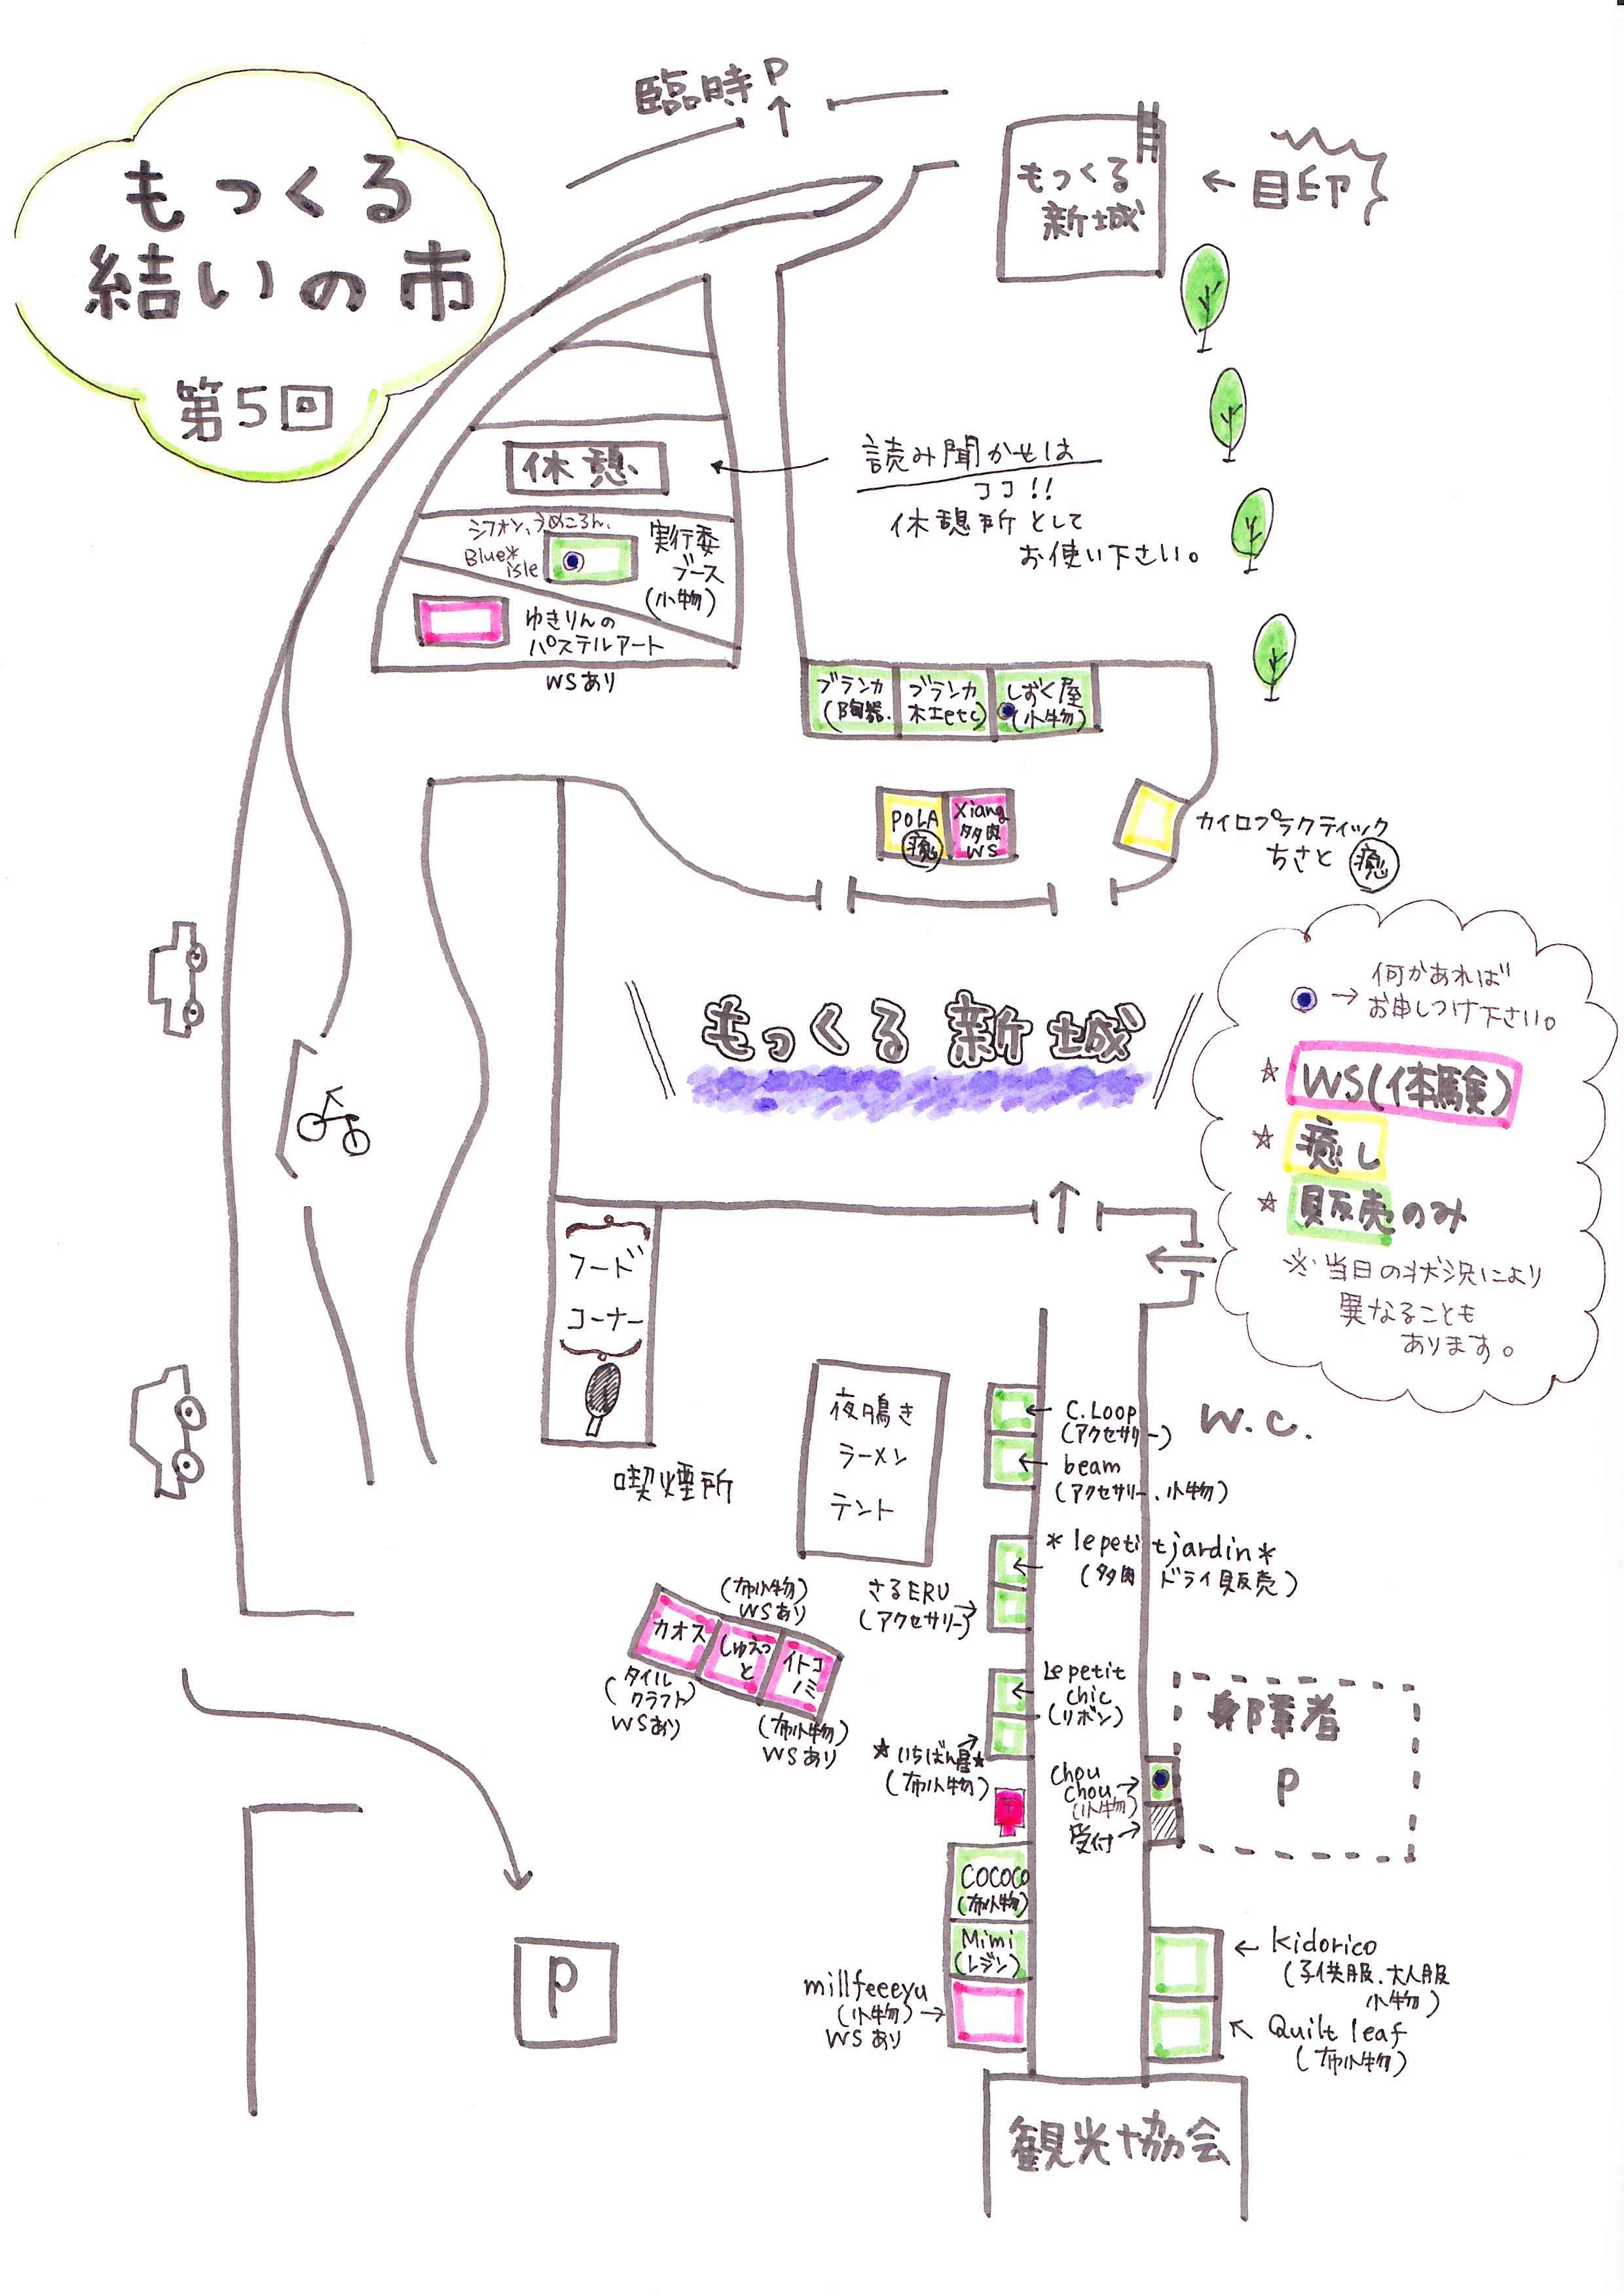 もっくる
結いの市
第5回
臨時P
もっくる
新城
←目印
休憩
読み聞かせは
ココ!!
休憩所として
お使い下さい。
シフォン、うめころん、
Blue*
isle
実行委
ブース
(小物)
ゆきりんの
パステルアート
WSあり
ブランカ
(陶器.
ブランカ
木工etc)
しずく屋
(小物)
POLA
癒
Xiang
多肉
WS
カイロプラクティック
ちさと 癒
もっくる 新城
→何かあれば
お申しつけ下さい。
☆ WS(体験)
☆ 癒し
☆ 販売のみ
※当日の状況により
異なることも
あります。
フード
コーナー
喫煙所
夜鳴き
ラーメン
テント
←C.LOOP
(アクセサリー)
←beam
(アクセサリー、小物)
W.C.
*lepetitjardin*
(多肉 ドライ販売)
さるERU
(アクセサリー)
(布小物)
WSあり
カオス
しゅえっ
と
イトコ
ノミ
(タイル
クラフト)
WSあり
(布小物)
WSあり
Lepetit
chic
(リボン)
★いちばん星★
(布小物)
〒
chou
chou
(小物)
受付
身障者
P
COCOCO
(布小物)
Mimi
(レジン)
millfeeeyu
(小物)
WSあり
P
←kidorico
(子供服、大人服
小物)
Quilt leaf
(布小物)
観光協会